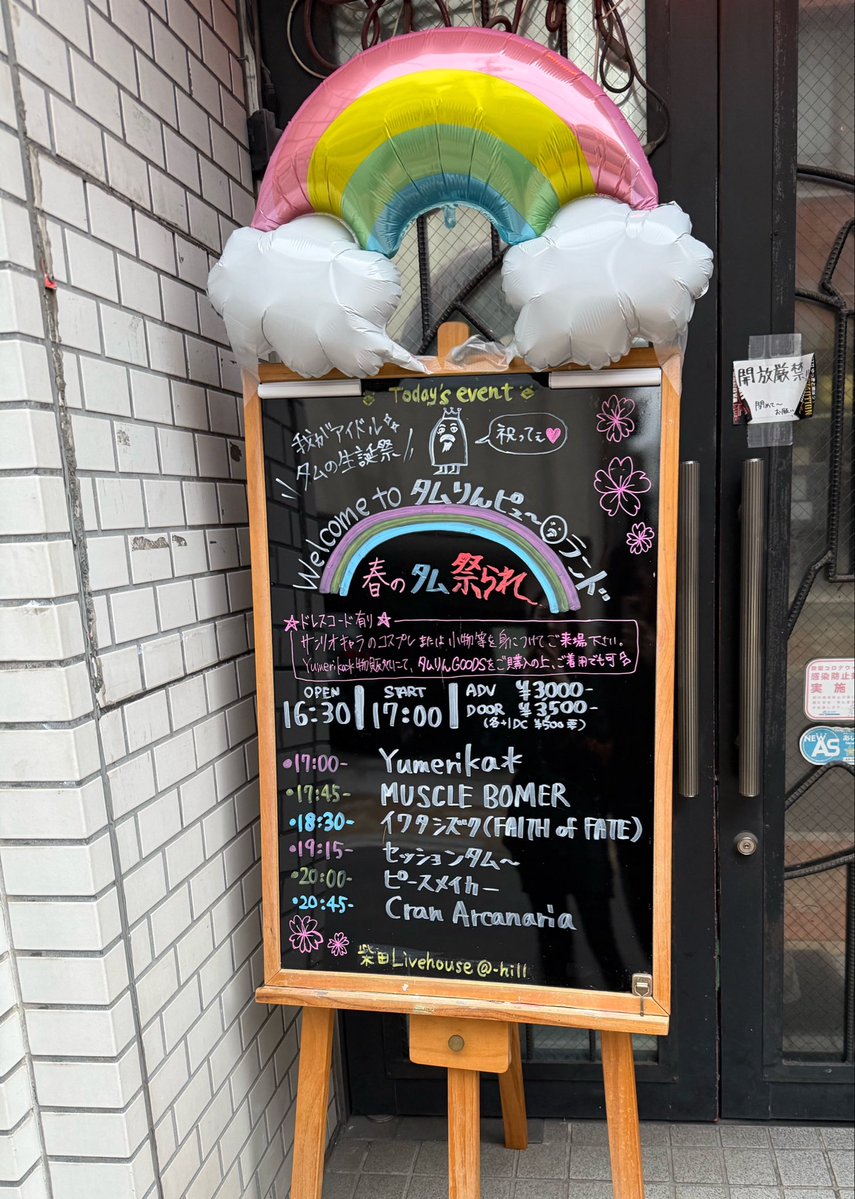 Today's event
我がアイドル
タムの生誕祭
祝ってぇ
Welcome to タムりんピューロランド
春のタム祭られ
ドレスコード有り
サンリオキャラのコスプレまたは小物等を身につけてご来場下さい。
Yumerika*物販にて、タムりんGOODSをご購入の上、ご着用でも可
OPEN
16:30
START
17:00
ADV ¥3000-
DOOR ¥3500-
(各+1DC ¥500要)
17:00- Yumerika*
17:45- MUSCLE BOMER
18:30- イワタシズク(FAITH of FATE)
19:15- セッションタム〜
20:00- ピースメイカー
20:45- Cran Arcanaria
柴田Livehouse@-hill
開放厳禁
閉めて〜
お願い
感染防止
実施
NEW
AS